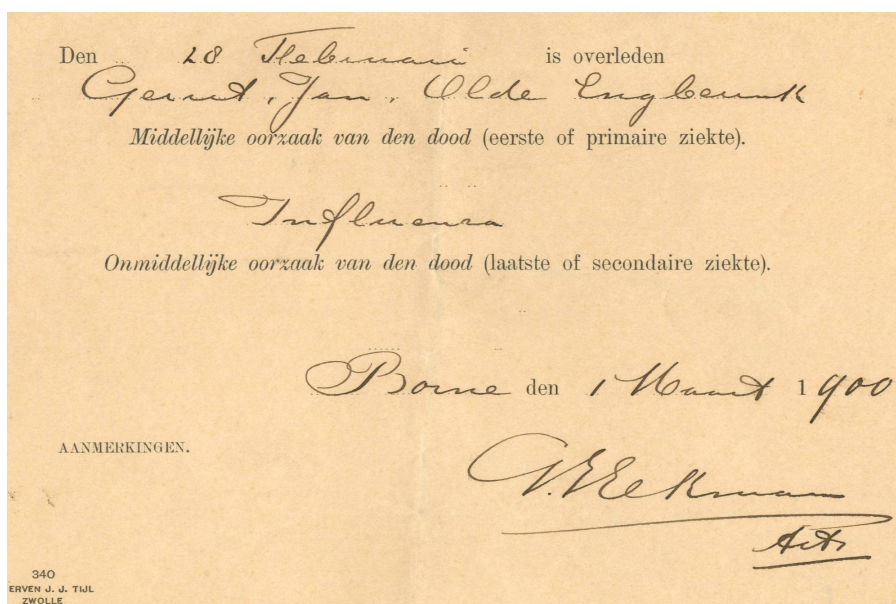 Den 28 Februari is overleden
Gerrit Jan Olde Engberink
Middellijke oorzaak van den dood (eerste of primaire ziekte).
Influenza
Onmiddellijke oorzaak van den dood (laatste of secondaire ziekte).
Borne den 1 Maart 1900
AANMERKINGEN.
Eekman
Arts
340
ERVEN J. J. TIJL
ZWOLLE